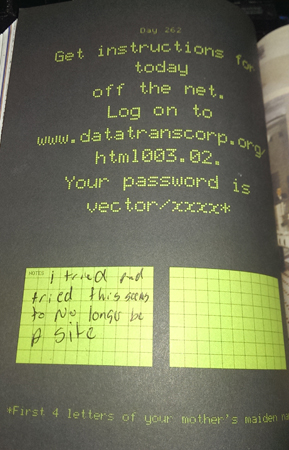 Day 262
Get instructions for
today
off the net.
Log on to
www.datatranscorp.org/
html003.02.
Your password is
vector/xxxx*
NOTES
i tried and
tried this seems
to No longer be
A site
*First 4 letters of your mother's maiden